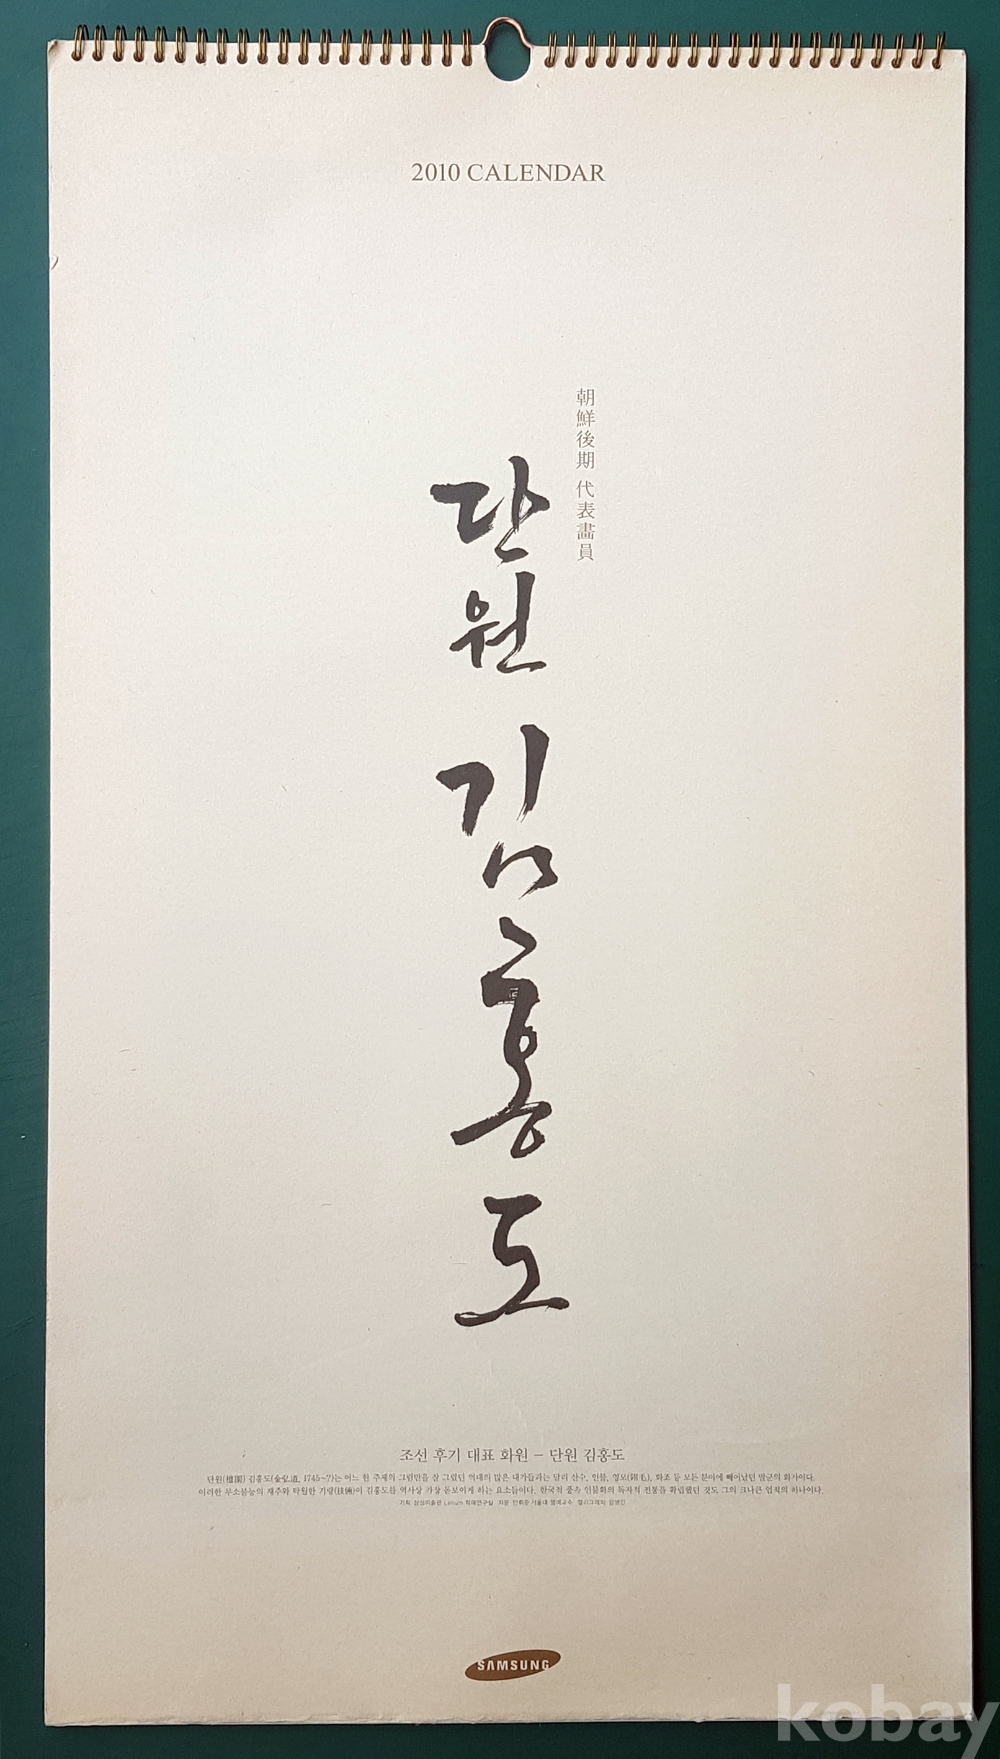 2010 CALENDAR
朝鮮後期 代表畵員
단원 김홍도
조선 후기 대표 화원 – 단원 김홍도
단원(檀園) 김홍도(金弘道, 1745~?)는 어느 한 주제의 그림만을 잘 그렸던 역대의 많은 대가들과는 달리 산수, 인물, 영모(翎毛), 화조 등 모든 분야에 빼어났던 발군의 화가이다.
이러한 무소불능의 재주와 탁월한 기량(技倆)이 김홍도를 역사상 가장 돋보이게 하는 요소들이다. 한국적 풍속 인물화의 독자적 전통을 확립했던 것도 그의 크나큰 업적의 하나이다.
기획 삼성미술관 Leeum 학예연구실 자문 안휘준 서울대 명예교수 캘리그래피
SAMSUNG
kobay